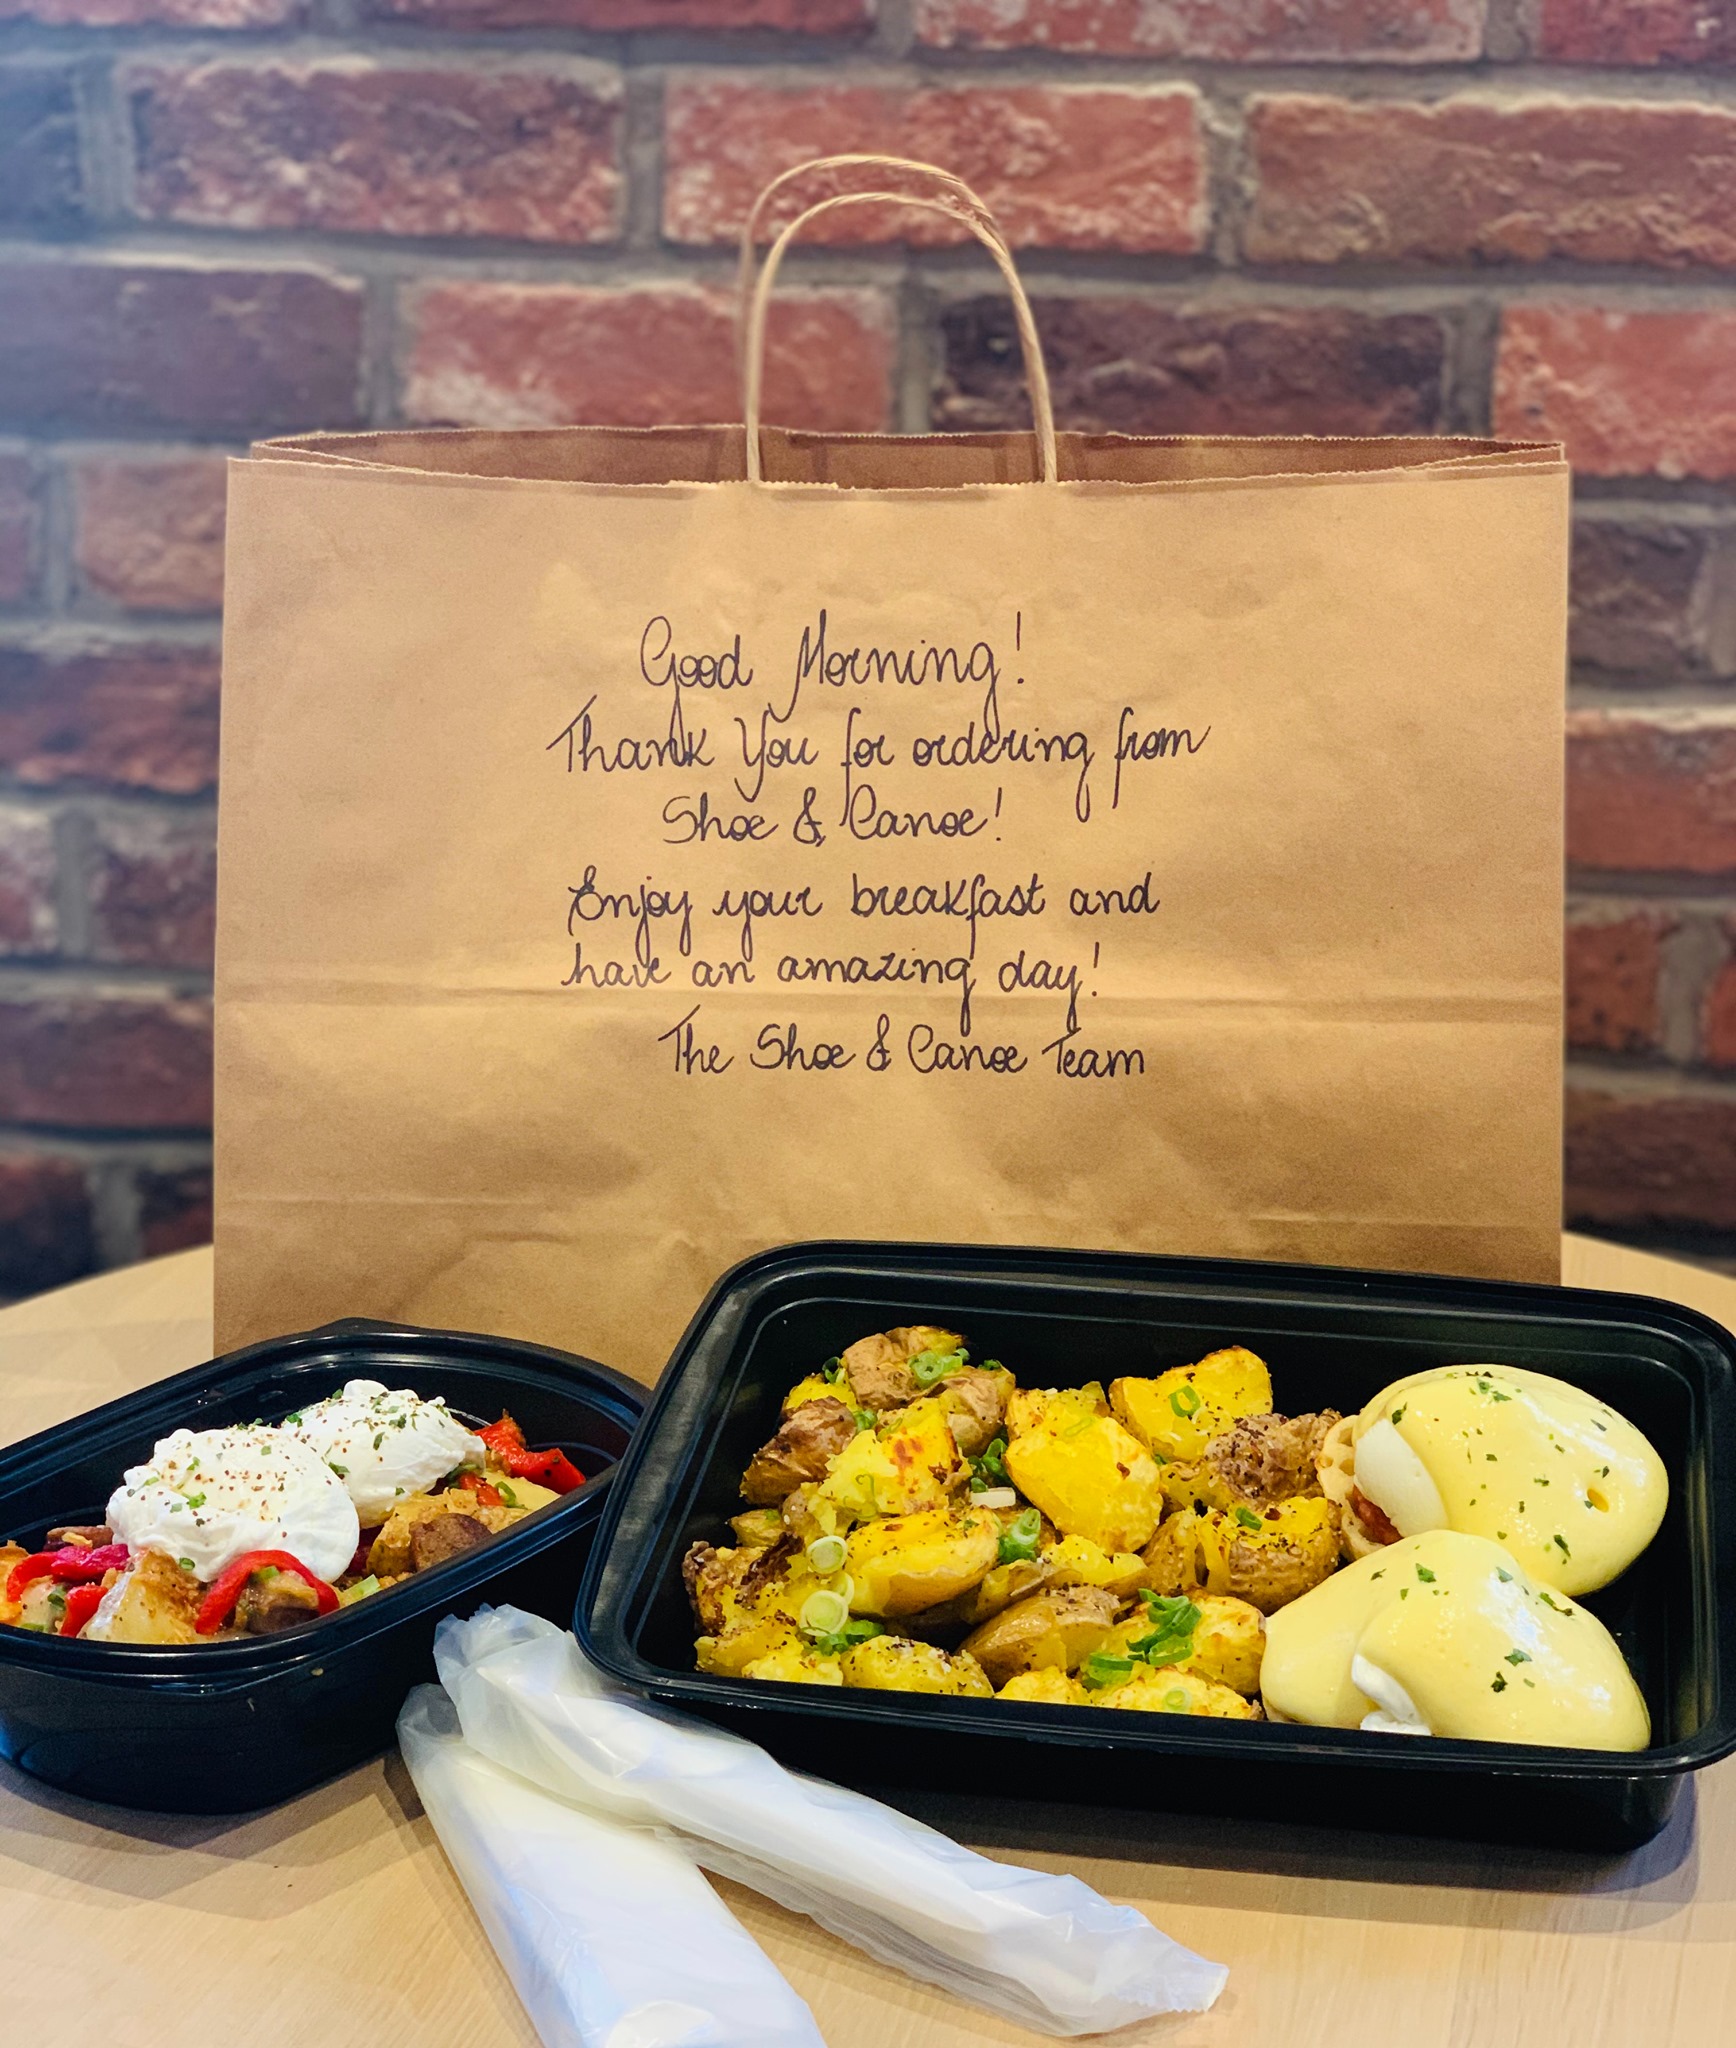 Good Morning!
Thank You for ordering from
Shoe & Canoe!
Enjoy your breakfast and
have an amazing day!
The Shoe & Canoe Team